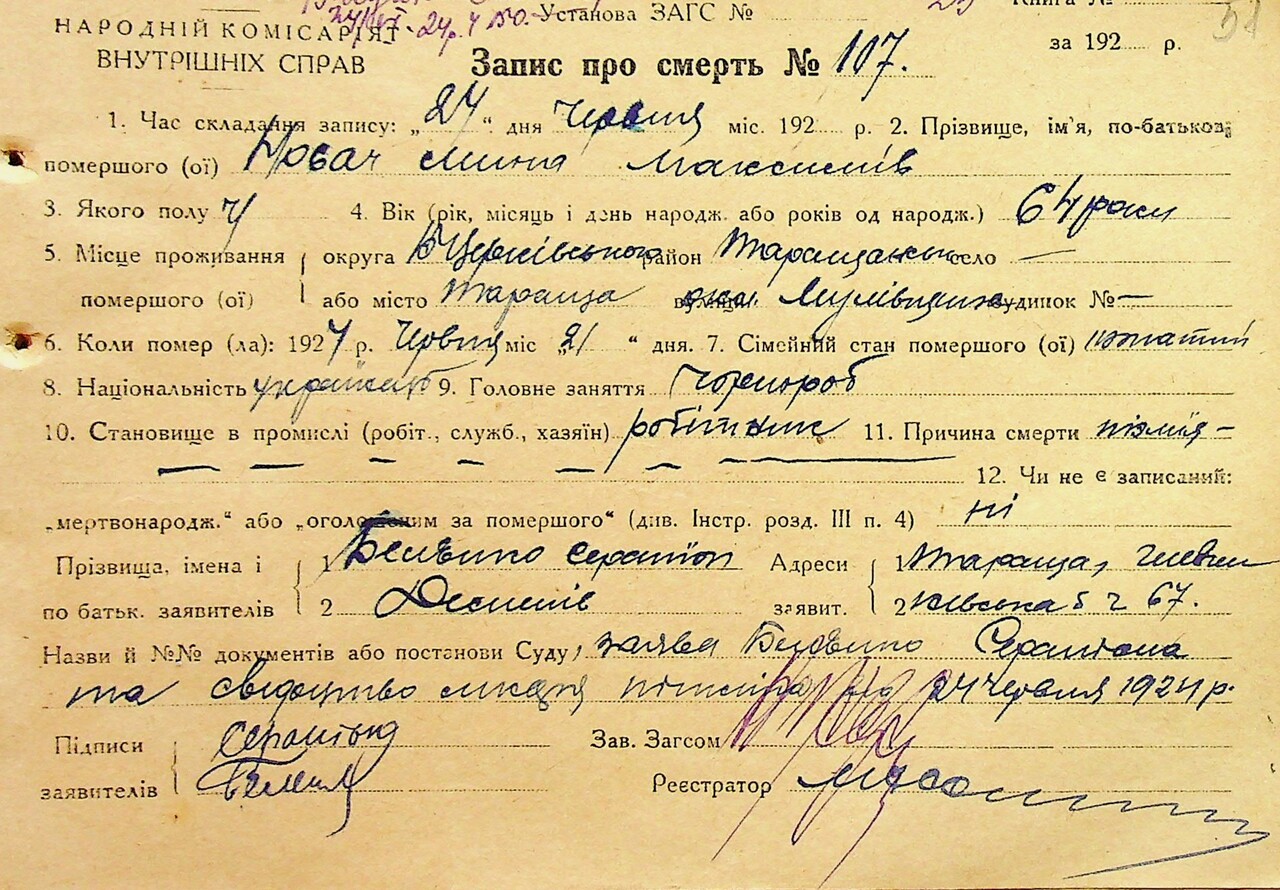 Установа ЗАГС № Книга №
НАРОДНІЙ КОМІСАРІЯТ
ВНУТРІШНІХ СПРАВ
за 192 р.
Запис про смерть № 107.
1. Час складання запису: „24“ дня Червня міс. 192 р. 2. Прізвище, ім'я, по-батькові
померлого (ої) Новач Мина Максимів
3. Якого полу Ч 4. Вік (рік, місяць і день народж. або років од народж.) 64 роки
5. Місце проживання округа Б Церківського район Таращанськ село —
померлого (ої) або місто Тараща будинок № —
6. Коли помер (ла): 1924 р. Червня міс „21“ дня. 7. Сімейний стан померлого (ої) жонатий
8. Національність українець 9. Головне заняття Чорнороб
10. Становище в промислі (робіт., служб., хазяїн) робітник 11. Причина смерти —
12. Чи не є записаний:
„мертвонародж.“ або „оголошеним за померлого“ (див. Інстр. розд. III п. 4) ні
Прізвища, імена і 1 Серапіон Адреси 1 Тараща,
по батьк. заявителів 2 заявит. 2 67.
Назви й №№ документів або постанови Суду, заява Серапіона
та свідоцтво від 24 червня 1924 р.
Підписи Серапіон Зав. Загсом
заявителів Реєстратор